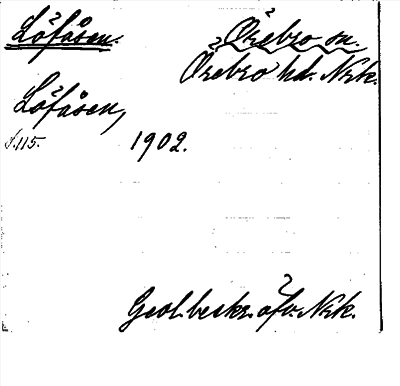 Löfåsen.
Örebro sn.
Örebro hd. Nrk.
Löfåsen,
s. 115.
1902.
Geol. beskr. öfv. Nrk.